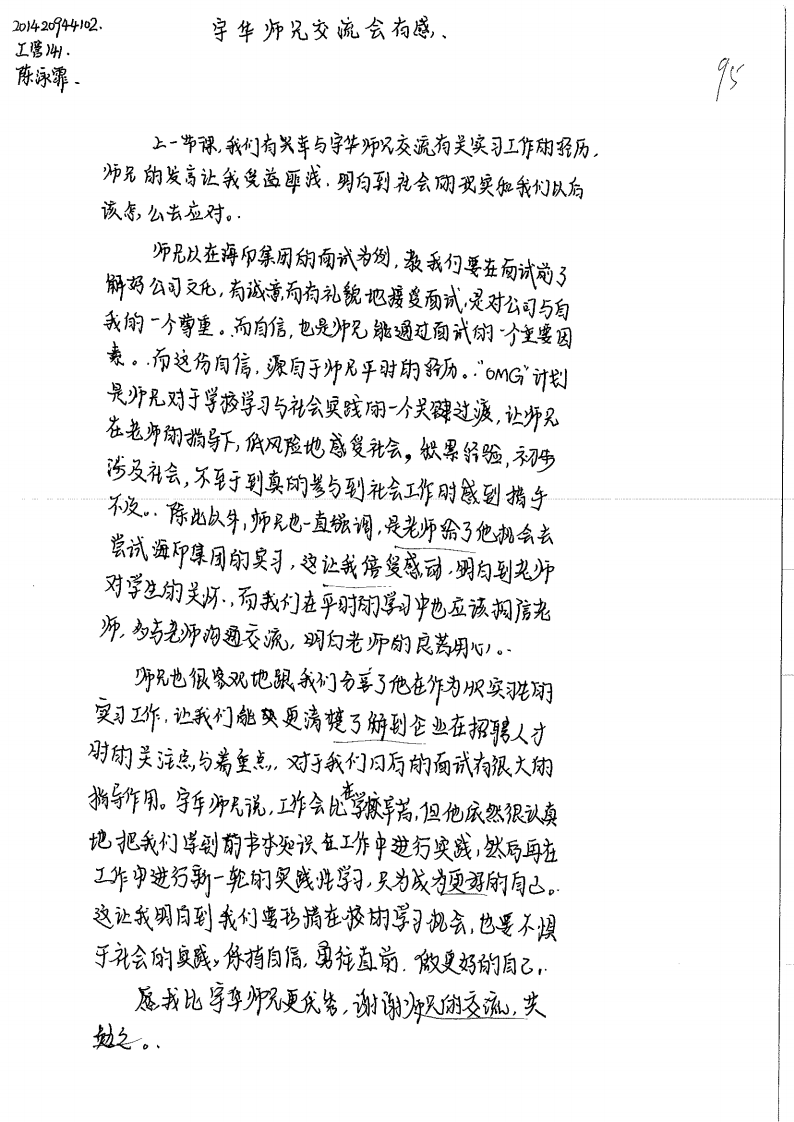 201420944102.
工营141.
陈泳霏.
宇华师兄交流会有感、
95
上一节课,我们有兴幸与宇华师兄交流有关实习工作的经历,
师兄的发言让我受益匪浅,明白到社会的现实和我们以后
该怎么去应对。
师兄以在海印集团的面试为例,教我们要在面试前了
解好公司文化,有诚意而有礼貌地接受面试,是对公司与自
我的一个尊重。而自信,也是师兄能通过面试的一个重要因
素。而这份自信,源自于师兄平时的经历。“OMG”计划
是师兄对于学校学习与社会实践的一个关键过渡,让师兄
在老师的指导下,低风险地感受社会,积累经验,初步
涉及社会,不至于到真的参与到社会工作时感到措手
不及。除此以外,师兄也一直强调,是老师给了他机会去
尝试海印集团的实习,这让我倍受感动,明白到老师
对学生的关怀,而我们在平时的学习中也应该相信老
师,多与老师沟通交流,明白老师的良苦用心。
师兄也很客观地跟我们分享了他在作为HR实习生的
实习工作,让我们能更清楚了解到企业在招聘人才
时的关注点与着重点,对于我们日后的面试有很大的
指导作用。宇华师兄说,工作会比在学校辛苦,但他依然很认真
地把我们学到的书本知识在工作中进行实践,然后再在
工作中进行新一轮的实践性学习,只为成为更好的自己。
这让我明白到我们要珍惜在校的学习机会,也要不惧
于社会的实践,保持自信,勇往直前,做更好的自己。
愿我比宇华师兄更优秀,谢谢师兄的交流,共
勉之。